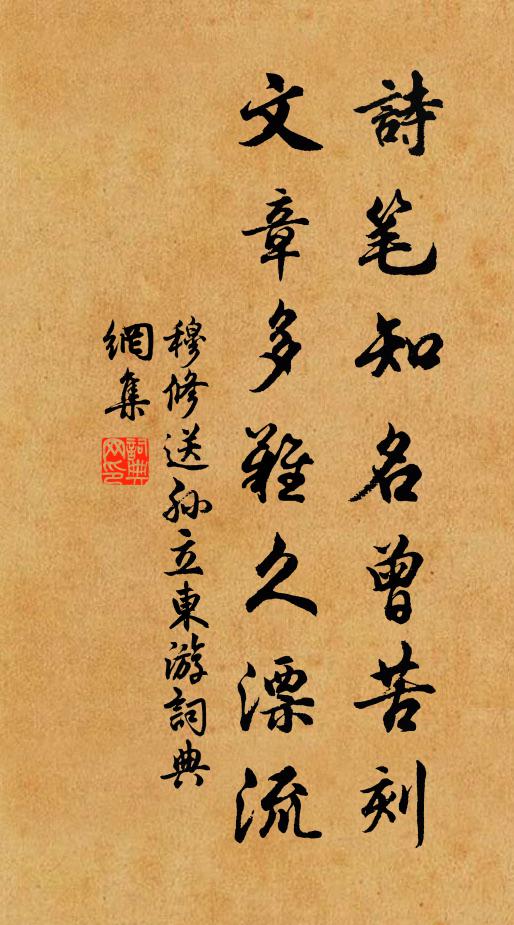 詩笔知名曾苦刻
文章多難久漂流
穆修送孙立東游詞典
網集
詞典網印